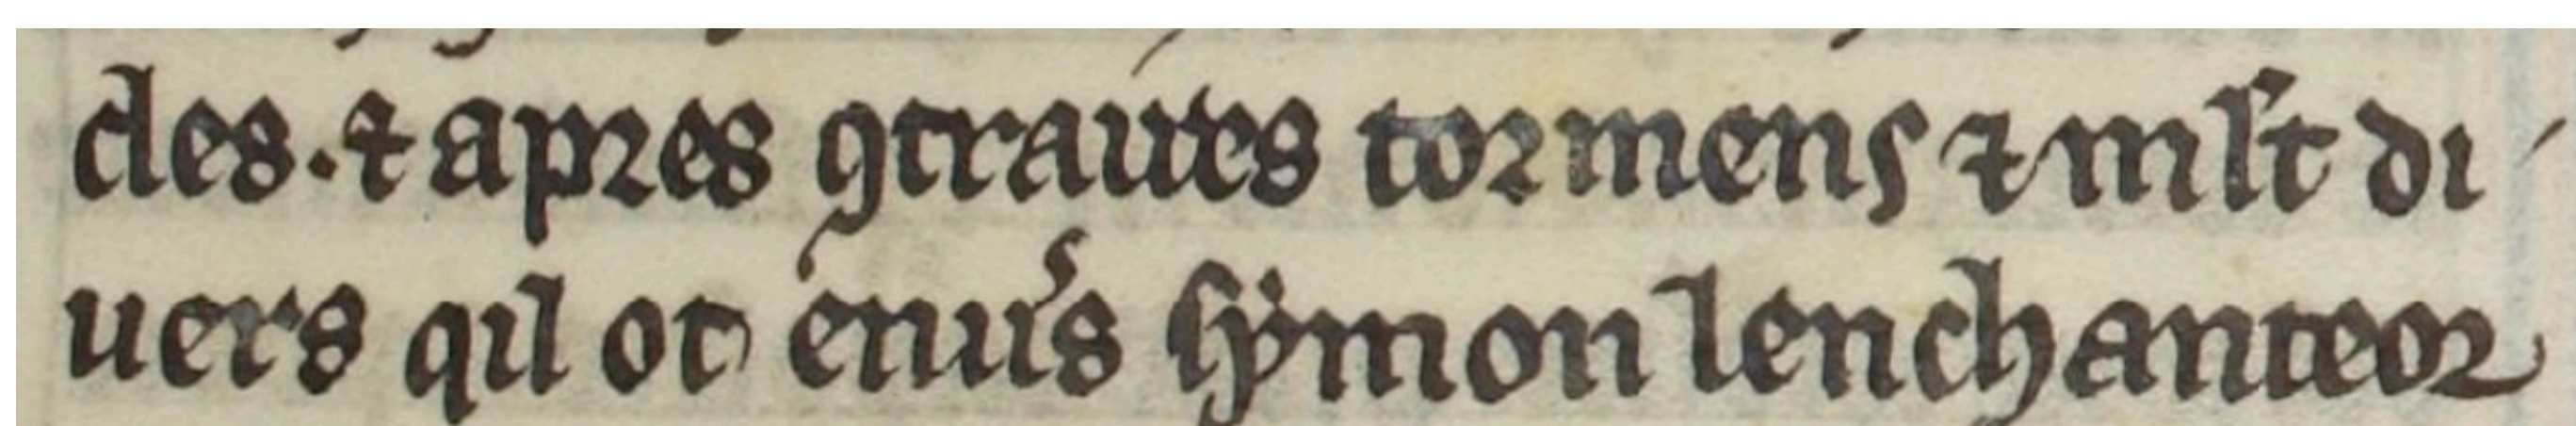 des. ⁊ apres ꝯtraires tormens ⁊ mlt di
uers qil ot enu's symon lenchanteor